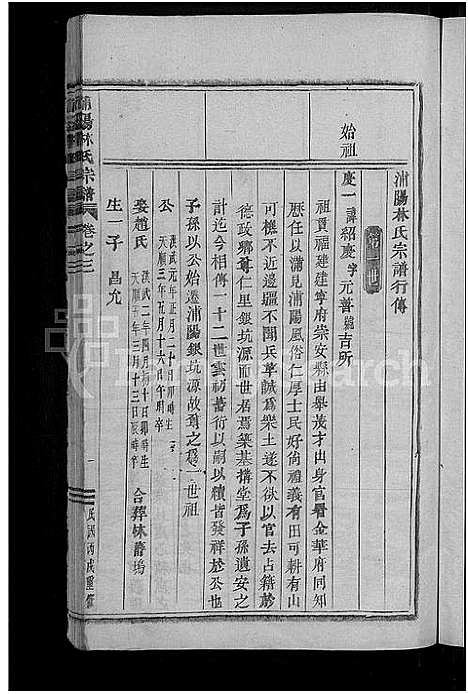 浦陽林氏宗譜行傳
第一世
始祖
慶一諱紹慶字元善號吉所
祖貫福建建寧府崇安縣由舉茂才出身官署金華府同知
歷任以滿見浦陽風俗仁厚士民好尙禮義有田可耕有山
可樵不近邊疆不聞兵革誠爲樂土遂不欲以官去占籍於
德政鄉尊仁里銀坑源而世居焉築基搆堂爲子孫遺安之
計迄今相傳一十二世雲礽蕃衍以嗣以續皆發祥於公也
子孫以公始遷浦陽銀坑源故尊之爲一世祖
公洪武元年正月二十日卯時生
天順三年五月十六日午時卒
娶趙氏洪武二年四月初十日卯時生
天順年三月十三日辰時卒
合葬
生一子昌允
浦陽林氏宗譜
卷之三
一
民國丙戌重修